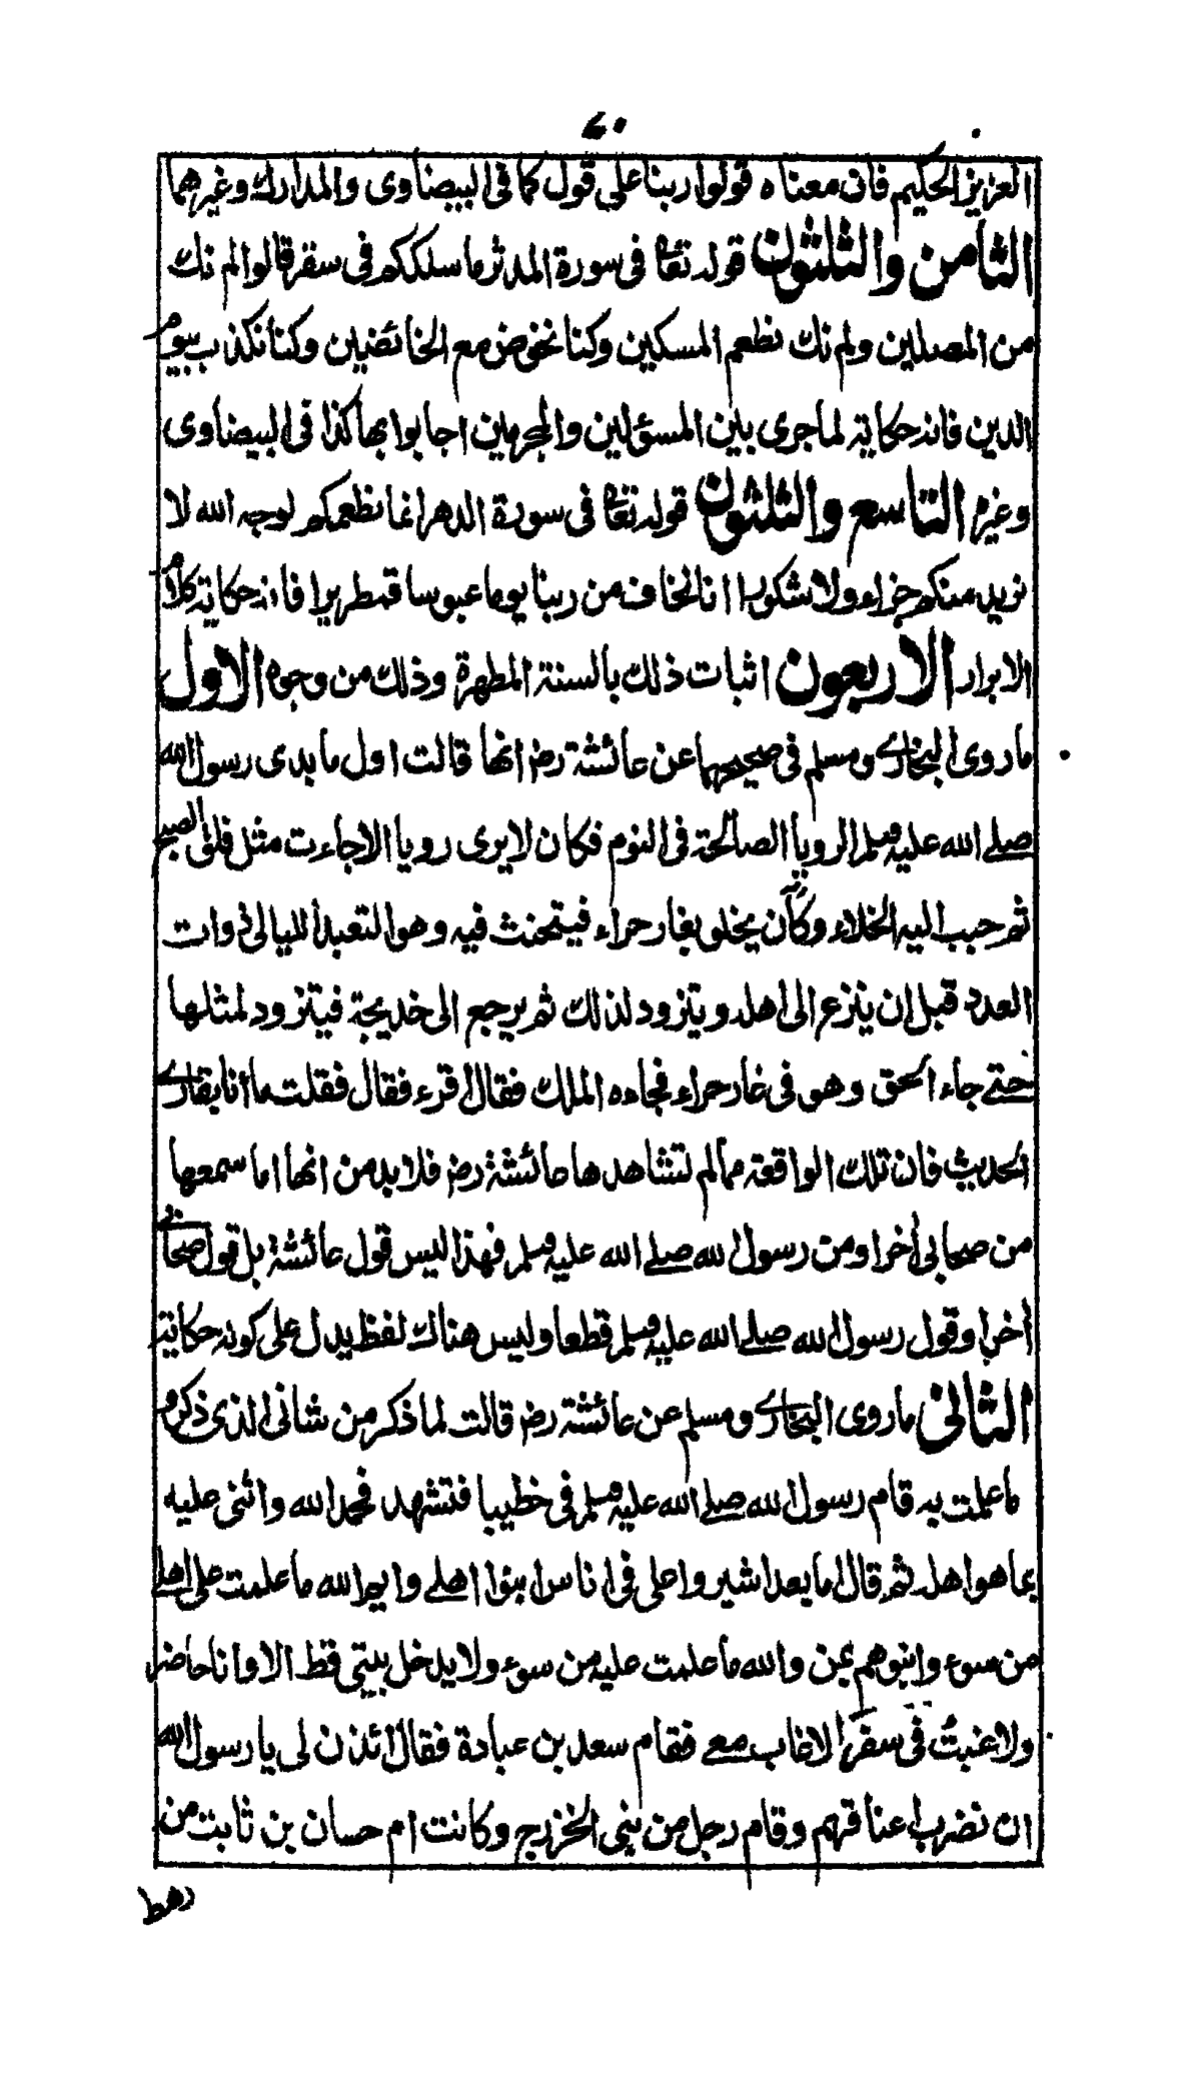 ٧٠
العزيز الحكيم فان معناه قولوا ربنا على قول كما فى البيضاوى والمدارك وغيرهما
الثامن والثلثون قوله تعالى فى سورة المدثر ما سلككم فى سقر قالوا لم نك
من المصلين ولم نك نطعم المسكين وكنا نخوض مع الخائضين وكنا نكذب بيوم
الدين فانه حكاية لما جرى بين المسؤلين والمجرمين اجابوا بها كذا فى البيضاوى
وغيره التاسع والثلثون قوله تعالى فى سورة الدهر انما نطعمكم لوجه الله لا
نريد منكم جزاء ولا شكورا انا نخاف من ربنا يوما عبوسا قمطريرا فانه حكاية كلام
الابرار الاربعون اثبات ذلك بالسنة المطهرة وذلك من وجوه الاول
ما روى البخارى ومسلم فى صحيحهما عن عائشة رض انها قالت اول ما بدى رسول الله
صلے الله عليه وسلم الرويا الصالحة فى النوم فكان لا يرى رويا الا جاءت مثل فلق الصبح
ثم حبب اليه الخلاء وكان يخلو بغار حراء فيتحنث فيه وهو التعبد الليالى ذوات
العدد قبل ان ينزع الى اهله ويتزود لذلك ثم يرجع الى خديجة فيتزود لمثلها
حتے جاء الحق وهو فى غار حراء فجاءه الملك فقال اقرء فقال فقلت ما انا بقارے
الحديث فان تلك الواقعة مما لم تشاهدها عائشة رض فلا بد من انها اما سمعها
من صحابى أخر او من رسول الله صلے الله عليه وسلم فهذا ليس قول عائشة بل قول صحابے
أخر او قول رسول الله صلے الله عليه وسلم قطعا وليس هناك لفظ يدل على كونه حكاية
الثانى ما روى البخارے ومسلم عن عائشة رض قالت لما ذكر من شانى الذى ذكر و
ما علمت به قام رسول الله صلے الله عليه وسلم فى خطيبا فتشهد فحمد الله واثنى عليه
بما هو اهله ثم قال اما بعد اشيروا على فى اناس ابنوا اهلے وايم الله ما علمت على اهلے
من سوء وابنوهم بمن والله ما علمت عليه من سوء ولا يدخل بيتى قط الا وانا حاضر
ولا غبت فى سفر الا غاب معے فقام سعد بن عبادة فقال ائذن لى يا رسول الله
ان نضرب اعناقهم وقام رجل من بنى الخزرج وكانت ام حسان بن ثابت من
رهط